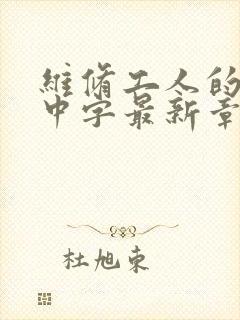 維脩工人的
中字最新章
杜旭東